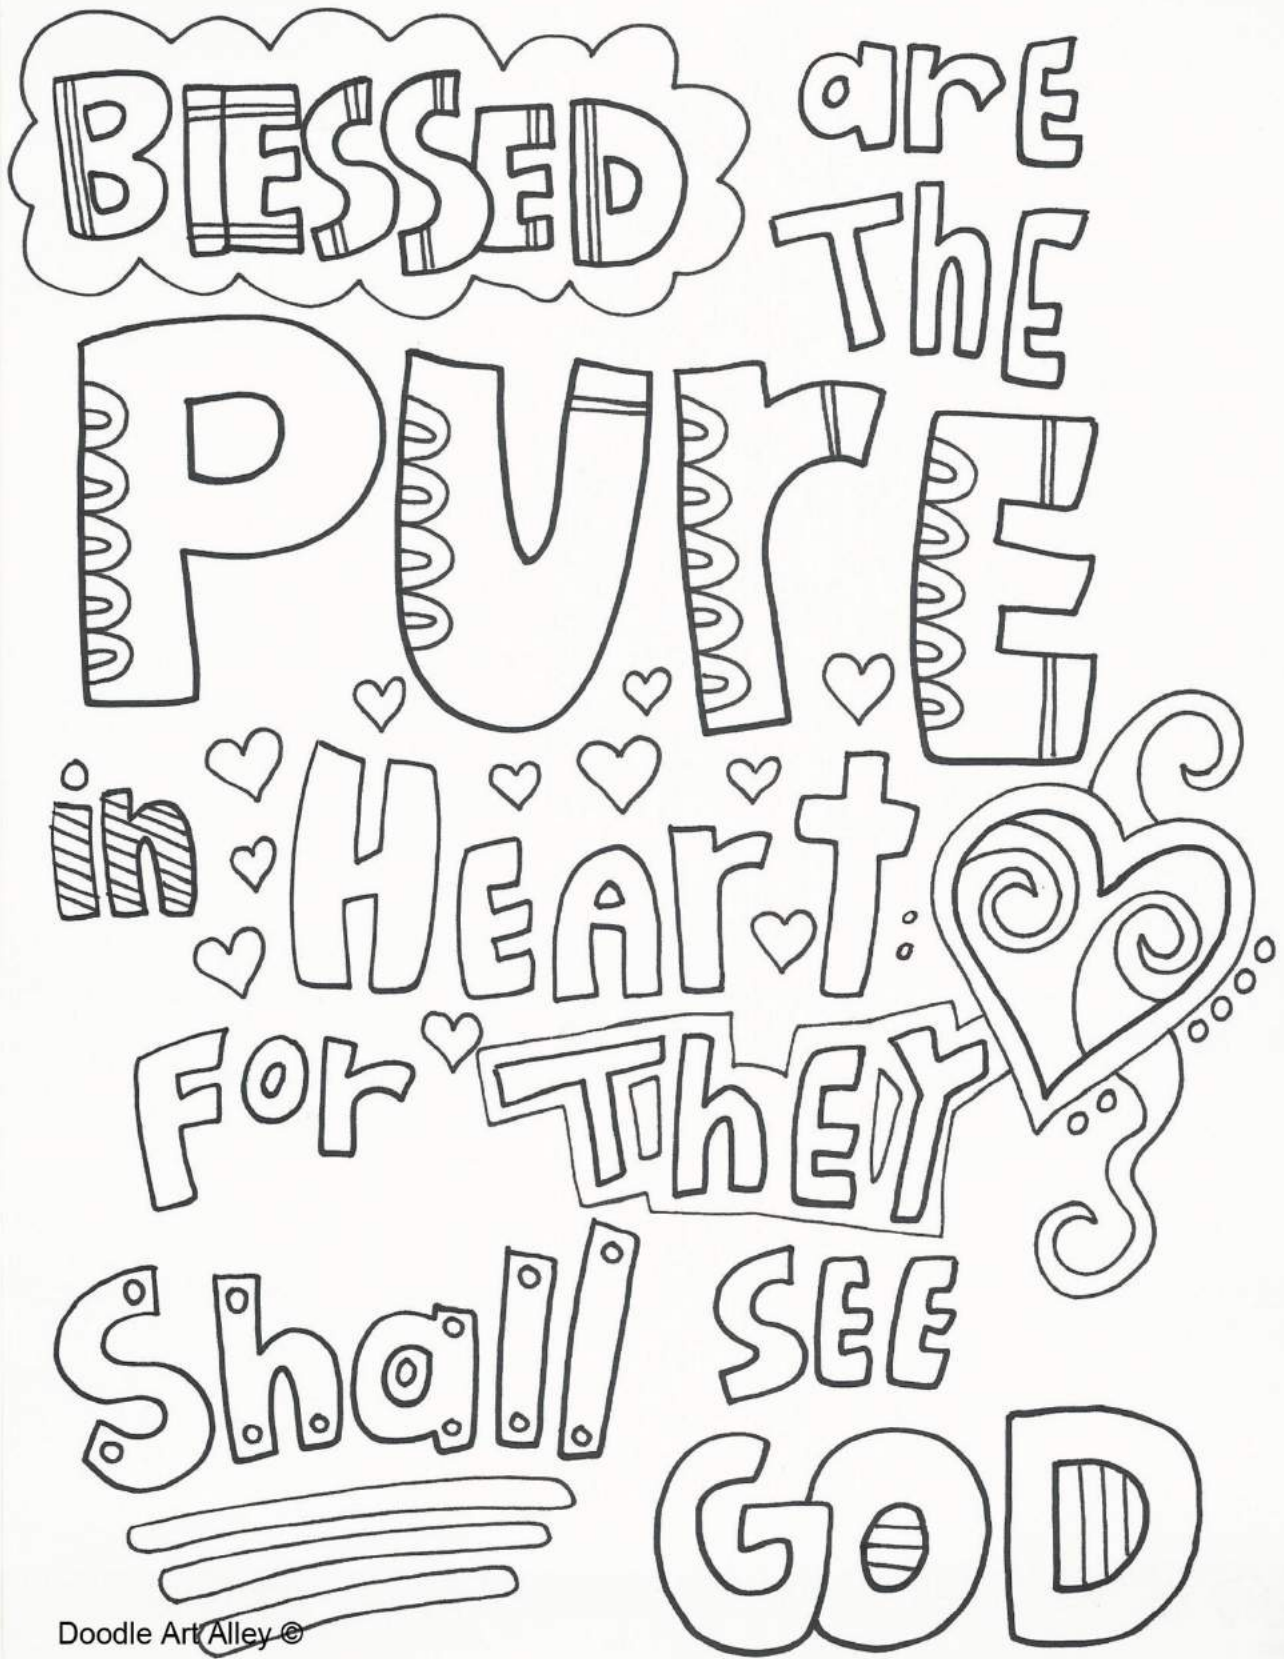 BLESSED are
The
PUrE
in HEArt:
For ThEY
Shall SEE
GOD
Doodle Art Alley ©